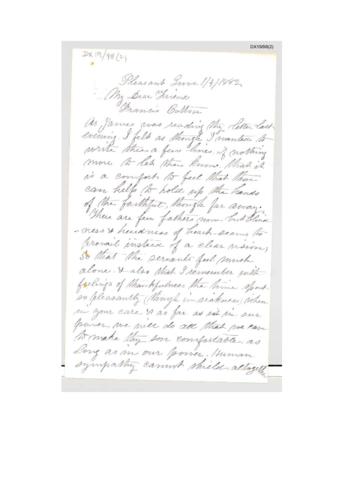 DX19/98(2)
DX 19/98(2)
Pleasant Grove 1/4/1882
My Dear Friend
Francis Cotton
As James was reading thy letter last
evening I felt as though I wanted to
write thee a few lines if nothing
more to let thee know that it
is a comfort to feel that thou
can help to hold up the hands
of the faithful, though far away.
There are few fathers now but blind
-ness & hardness of heart seems to
prevail instead of a clear vision,
so that the servants feel much
alone. & also that I remember with
feelings of thankfulness the time spent
so pleasantly though in weakness, when
in your care. & as far as is in our
power, we will do all that we can
to make thy son comfortable as
long as in our power. Human
sympathy cannot shield